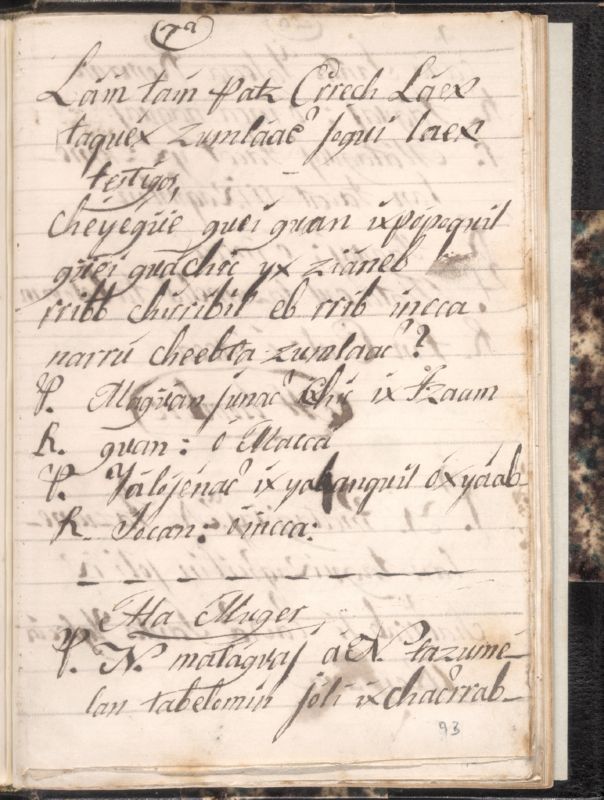 (7ª)
Lám tám patz Crrech Láex
taquex zumláac² joqui laex
testigos,
chéyegüe guei guan ixpópoquil
güei guáchic yx ziáneb
rribt chicribil eb rrib incca
narru cheebra zumlaac²?
P. Maguan junac² chic ix tzaum
R. guan: ó Macca
P. Jálojénac² ix yabanquil óx yáab-
R. Jocan: ó incca:
A la Muger
P. N. matáguaj a N. tazumé-
lan tabelomin joli ix chacrrab-
93